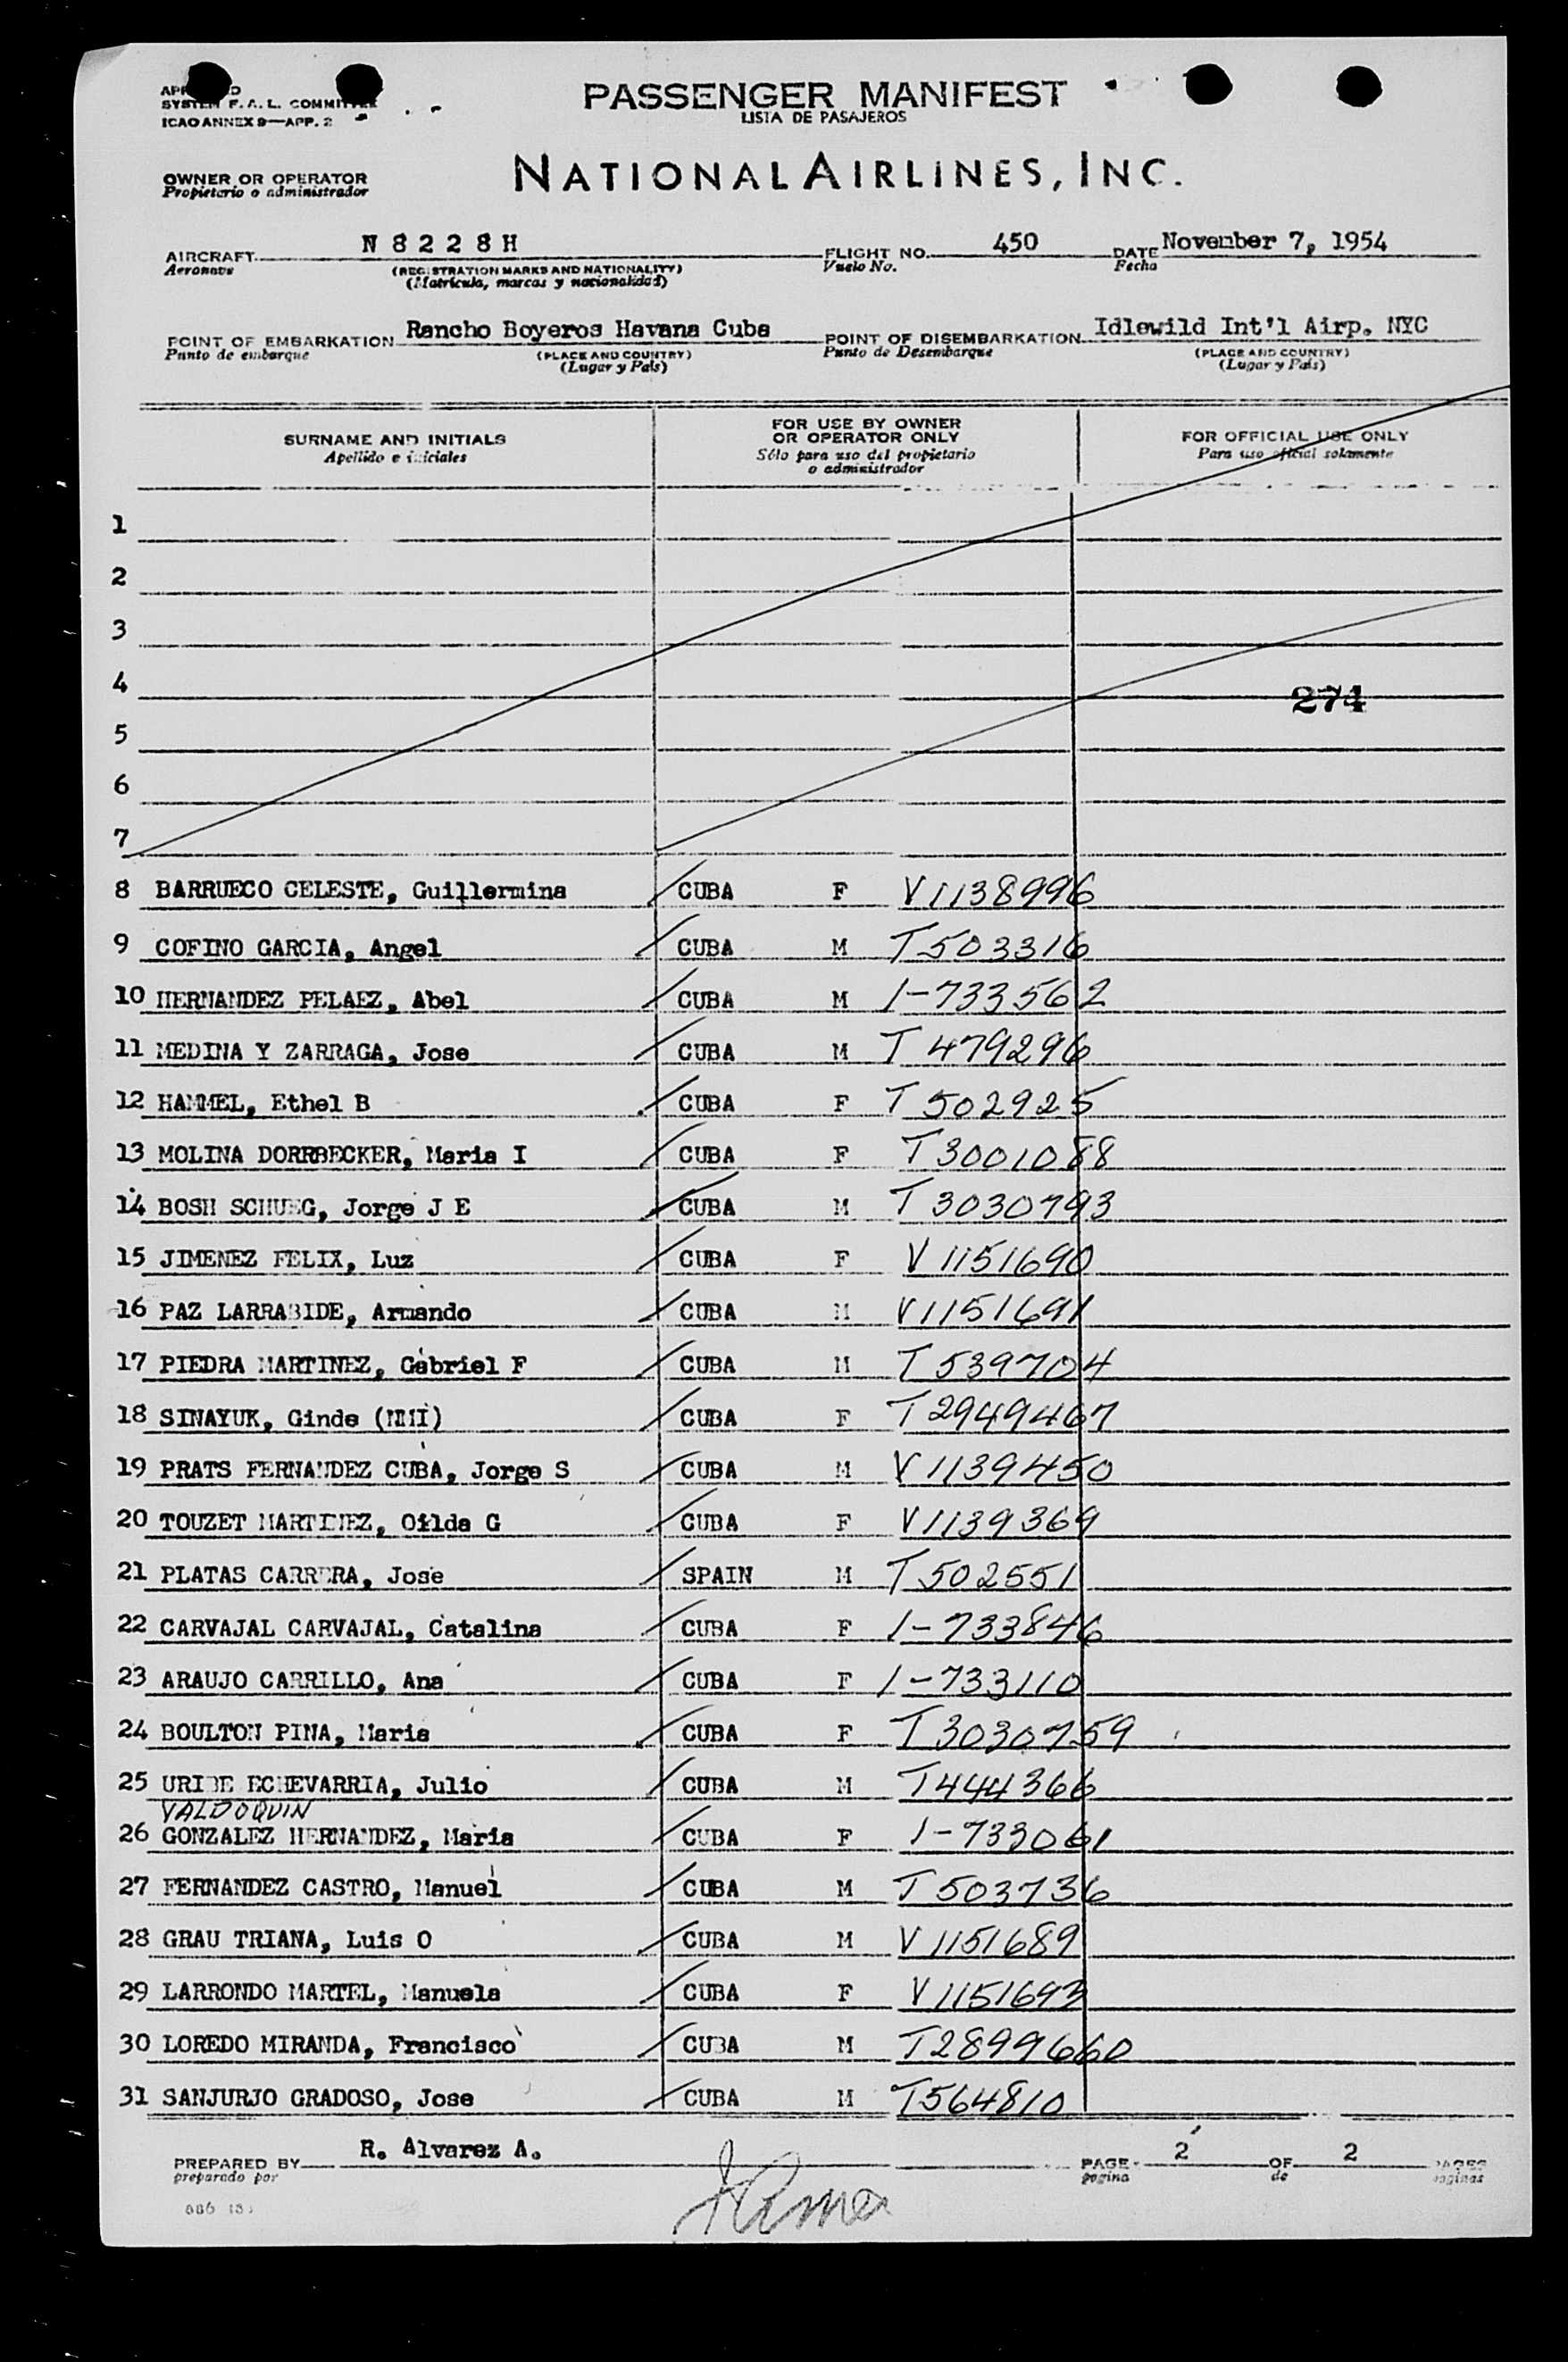 SYSTEM F.A.L. COMMITTEE
ICAO ANNEX 9—APP. 2
PASSENGER MANIFEST
LISTA DE PASAJEROS
OWNER OR OPERATOR
Propietario o administrador
NATIONAL AIRLINES, INC.
AIRCRAFT N 8 2 2 8 H FLIGHT NO. 450 DATE November 7, 1954
Aeronave (REGISTRATION MARKS AND NATIONALITY) Vuelo No. Fecha
(Matrícula, marcas y nacionalidad)
POINT OF EMBARKATION Rancho Boyeros Havana Cuba POINT OF DISEMBARKATION Idlewild Int'l Airp. NYC
Punto de embarque (PLACE AND COUNTRY) Punto de Desembarque (PLACE AND COUNTRY)
(Lugar y País) (Lugar y País)
SURNAME AND INITIALS FOR USE BY OWNER OR OPERATOR ONLY FOR OFFICIAL USE ONLY
Apellido e iniciales Sólo para uso del propietario o administrador Para uso oficial solamente
1
2
3
4
274
5
6
7
8 BARRUECO CELESTE, Guillermina CUBA F V1138996
9 COFINO GARCIA, Angel CUBA M T503316
10 HERNANDEZ PELAEZ, Abel CUBA M 1-733562
11 MEDINA Y ZARRAGA, Jose CUBA M T 479296
12 HAMMEL, Ethel B CUBA F T 502925
13 MOLINA DORRBECKER, Maria I CUBA F T3001088
14 BOSH SCHUEG, Jorge J E CUBA M T 3030793
15 JIMENEZ FELIX, Luz CUBA F V 1151690
16 PAZ LARRABIDE, Armando CUBA M V1151691
17 PIEDRA MARTINEZ, Gabriel F CUBA M T 539704
18 SINAYUK, Ginde (NMI) CUBA F T2949467
19 PRATS FERNANDEZ CUBA, Jorge S CUBA M V1139450
20 TOUZET MARTINEZ, Oilda G CUBA F V1139369
21 PLATAS CARRERA, Jose SPAIN M T502551
22 CARVAJAL CARVAJAL, Catalina CUBA F 1-733846
23 ARAUJO CARRILLO, Ana CUBA F 1-733110
24 BOULTON PINA, Maria CUBA F T3030759
25 URIBE ECHEVARRIA, Julio CUBA M T444366
VALDOQUIN
26 GONZALEZ HERNANDEZ, Maria CUBA F 1-733061
27 FERNANDEZ CASTRO, Manuel CUBA M T503736
28 GRAU TRIANA, Luis O CUBA M V 1151689
29 LARRONDO MARTEL, Manuela CUBA F V 1151693
30 LOREDO MIRANDA, Francisco CUBA M T2899660
31 SANJURJO GRADOSO, Jose CUBA M T564810
PREPARED BY R. Alvarez A. PAGE 2 OF 2 PAGES
preparado por pagina de paginas